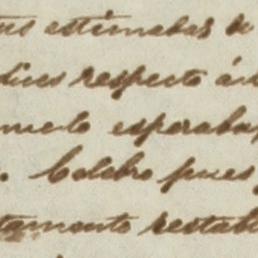 us estimadas de
dices respecto á
melo esperaba,
. Celebro pues
tamente restab